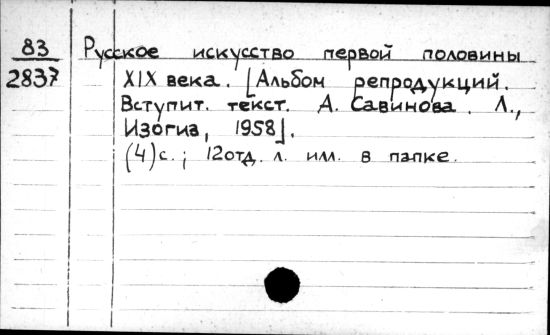 83
2837
Русское искусство первой половины
XIX века. [Альбом репродукций.
Вступит. текст. А. Савинова. Л.,
Изогиз, 1958].
(4)с.; 12отд. л. илл. в папке.